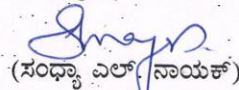 (ಸಂಧ್ಯಾ ಎಲ್ ನಾಯಕ್)